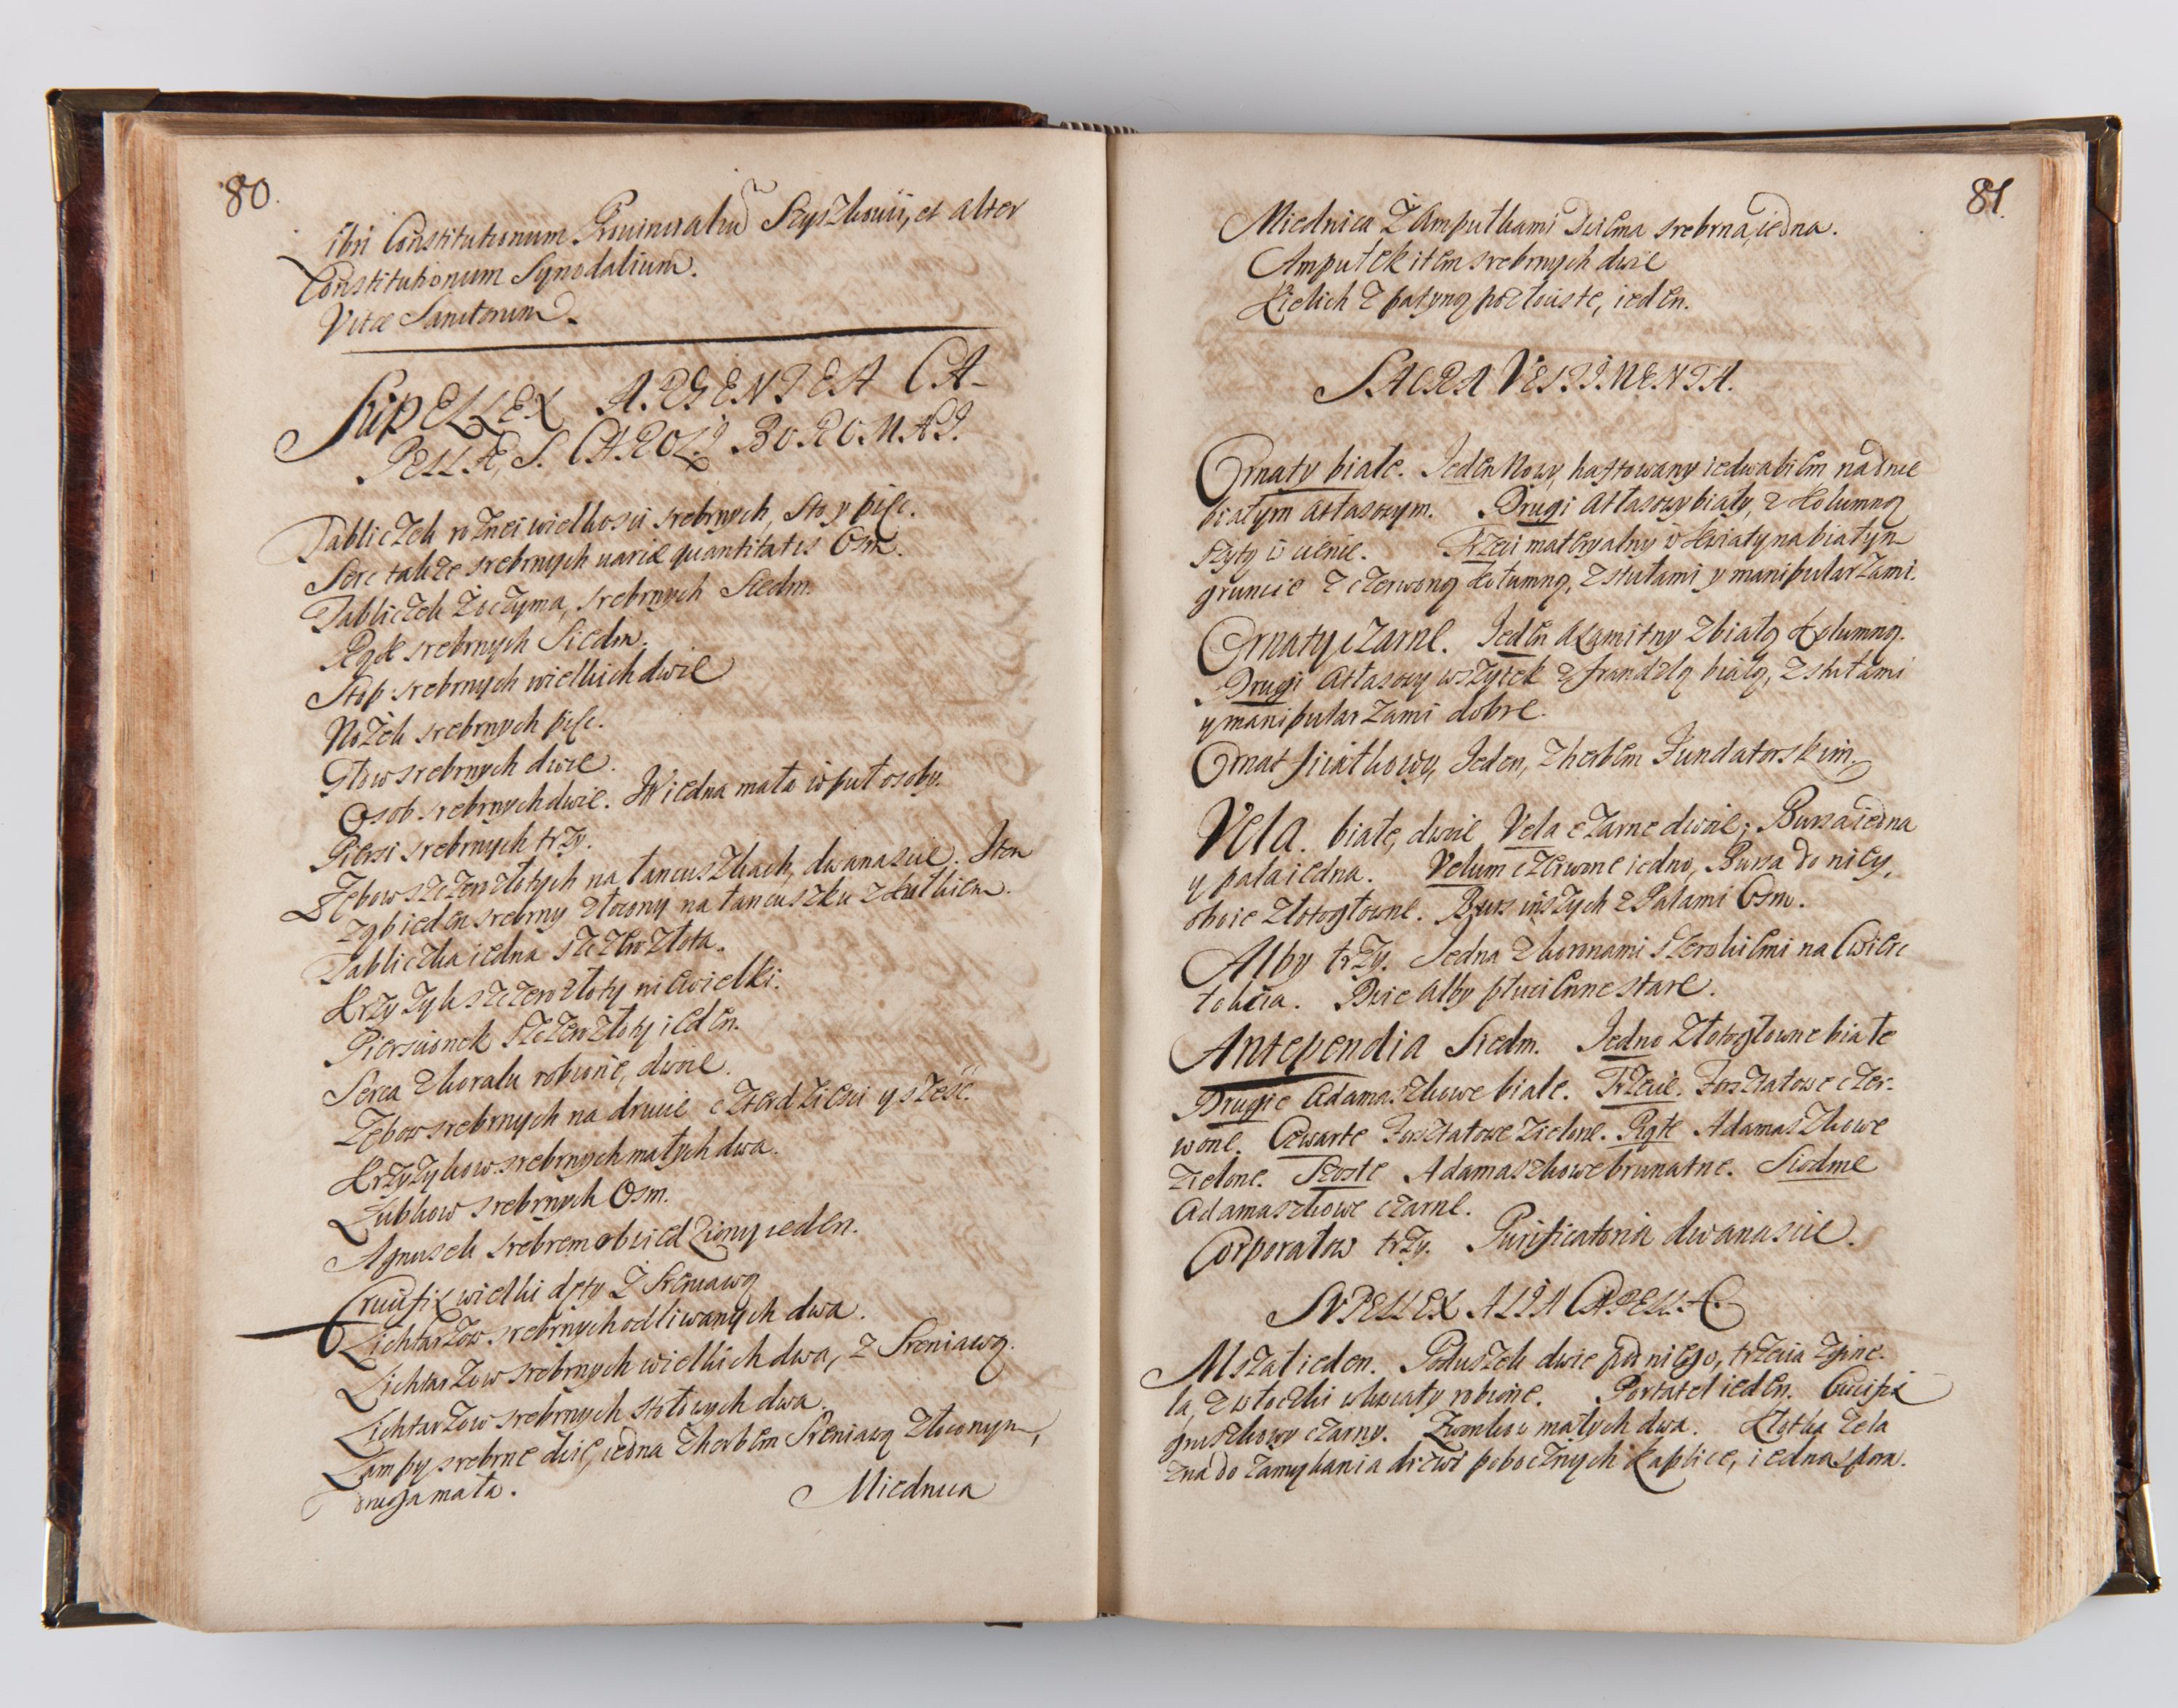 80.
ibri Constitutionum Prouincialiu Szyszkouii, et alter
Constitutionum Synodalium.
Vitæ Sanctorum.
SupELLEX ARGENTEA CA-
PELLÆ, S. CAROLI BOROMÆI.
Tabliczek rożnei wielkosci srebrnych, sto y pięc.
Serc także srebrnych variæ quantitatis Osm.
Tabliczek z oczyma, srebrnych Siedm.
Rąk srebrnych Siedm.
Stop srebrnych wielkich dwie
Nożek srebrnych pięc.
Głow srebrnych dwie.
Osob srebrnych dwie. Iedna mała w puł osoby.
Piersi srebrnych trzy.
Zębow szczerozłotych na łancuszkach, dwanascie. Item
Ząb ieden srebrny złocony na łancuszku z kutkiem.
Tabliczka iedna szczerozłota.
Krzyżyk szczerozłoty niewielki.
Pierscionek szczerozłoty ieden.
Serca z koralu robione, dwie.
Zębow srebrnych na drucie czterdziesci y szesc.
Krzyżykow srebrnych małych dwa.
Zubkow srebrnych Osm.
Agnusek srebrem obwiedziony ieden.
Crucifix wielki dęty z Sreniawą
Lichtarzow srebrnych odliwanych dwa.
Lichtarzow srebrnych wielkich dwa, z Sreniawą.
Lichtarzow srebrnych stołowych dwa.
Lampy srebrne dwie, iedna z herbem Sreniawą złoconym,
druga mała. Miednica
81.
Miednica z Ampułkami dwiema srebrna, iedna.
Ampułek item srebrnych dwie
Kielich z patyną pozłociste, ieden.
SACRA VESTIMENTA.
Ornaty białe. Ieden nowy, haftowany iedwabiem, na dnie
białym atłasowym. Drugi Atłasowy biały, z kolumną
szyty w cenie. Trzeci materyalny w kwiaty na białym
gruncie z czerwoną kolumną, z stułami y manipularzami.
Ornaty czarne. Ieden Axamitny z białą kolumną.
Drugi Atłasowy wszytek z frandzlą białą, z stułami
y manipularzami dobre.
Ornat fiiałkowy, Ieden, z herbem Fundatorskim.
Vela. białe, dwie Vela czarne dwie; Bursa iedna
y pala iedna. Velum czerwone iedno, Bursa do niey,
oboie złotogłowne. Burs inszych z Palami Osm.
Alby trzy. Iedna z koronami szerokiemi na Cwierc
łokcia. Dwie Alby płucienne stare.
Antependia Siedm. Iedno Złotogłowne białe
Drugie Adamaszkowe białe. Trzecie. Forsztatowe czer-
wone. Czwarte Forsztatowe zielone. Piąte Adamaszkowe
zielone. Szoste Adamaszkowe brunatne. Siodme
Adamaszkowe czarne.
Corporałow trzy. Purificatoria dwanascie.
SVPELLEX ALIA CAPELLÆ
Mszał ieden. Poduszek dwie pod niego, trzecia zgine-
ła, z włoczki w kwiaty robione. Portatel ieden. Crucifix
gruszkowy czarny. Zwonkow małych dwa. Kłotka żela
zna do zamykania drzwi pobocznych kaplice, iedna spora.